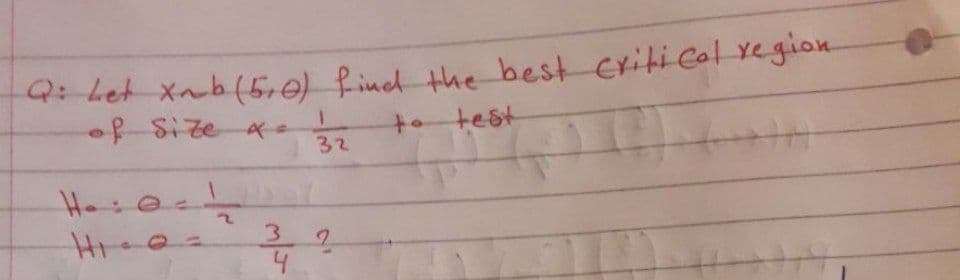 Q: Let x~b(5,θ) find the best critical region
of size α = 1/32 to test
H₀: θ = 1/2
H₁: θ = 3/4 ?